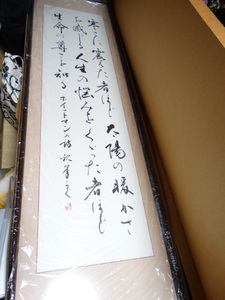 寒さに震えた者ほど太陽の暖かさ
を感じる人生の悩みをくぐった者ほど
生命の尊さを知る ホイットマンの詩